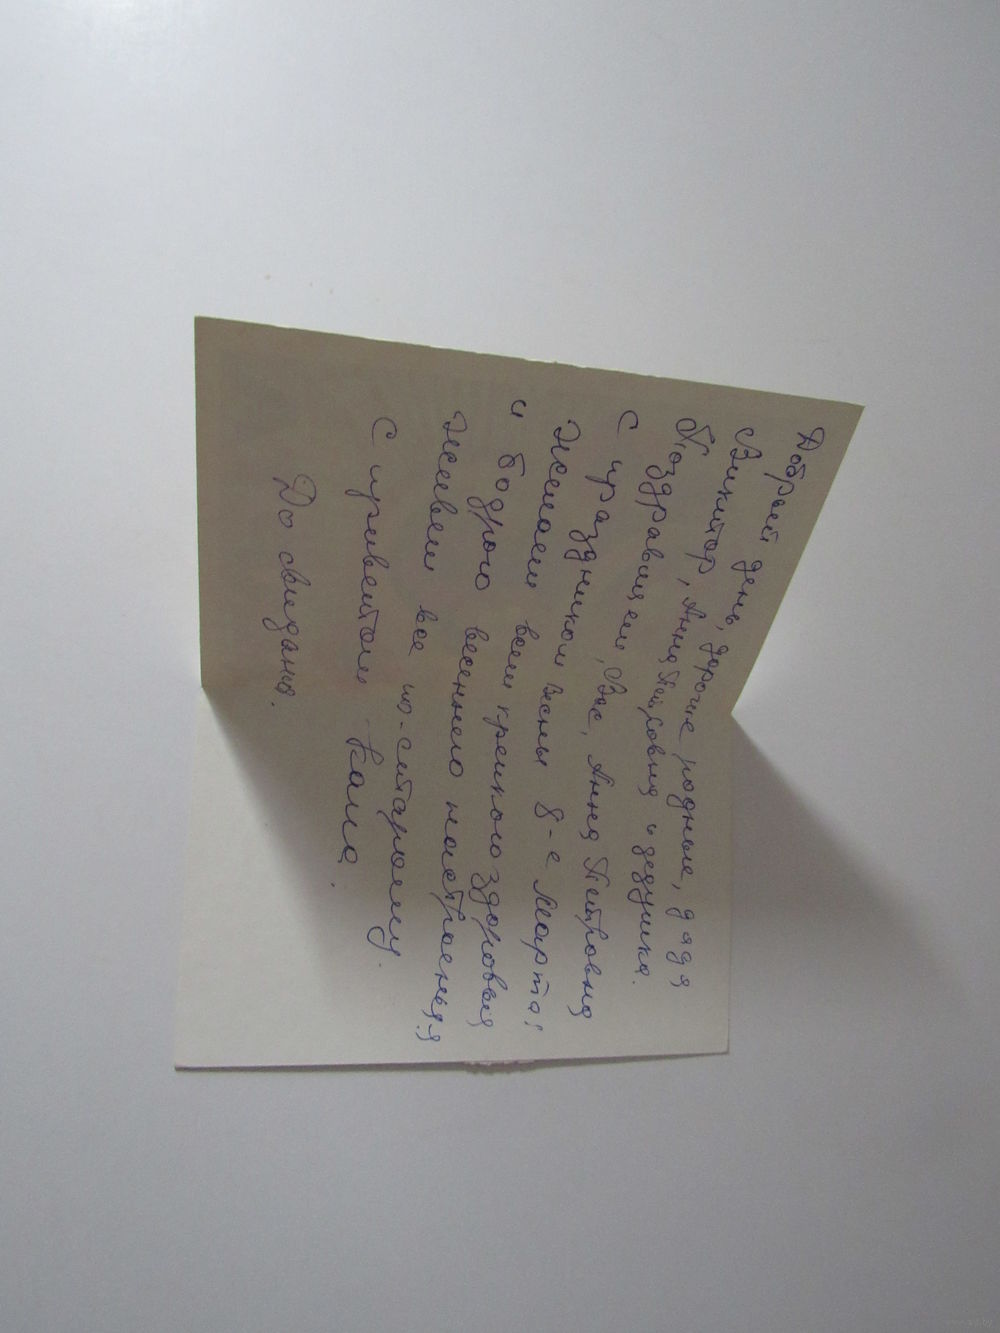 Добрый день, дорогие родные, дядя
Виктор, Анна Петровна и дедушка.
Поздравляем, Вас, Анна Петровна
С праздником весны 8-е Марта!
Желаем всем крепкого здоровья
и бодрого весеннего настроенья.
Живем все по-старому.
С приветом
До свидания.